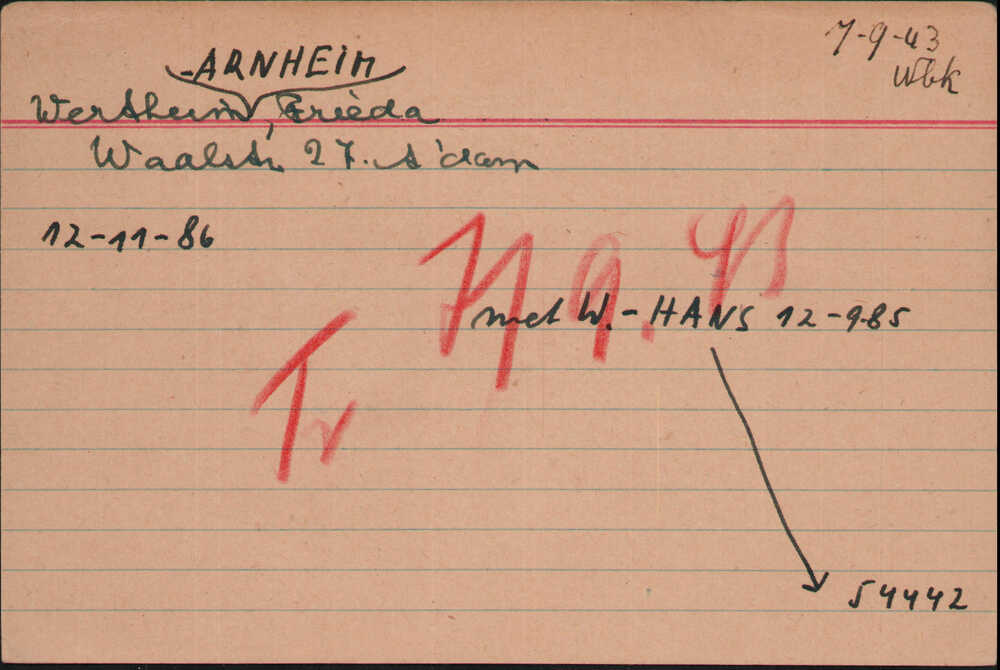 7-9-43
Wbk
-ARNHEIM
Wertheim, Frieda
Waalstr. 27. A'dam
12-11-86
Tr 7/9.43
met W.- HANS 12-9-85
54442